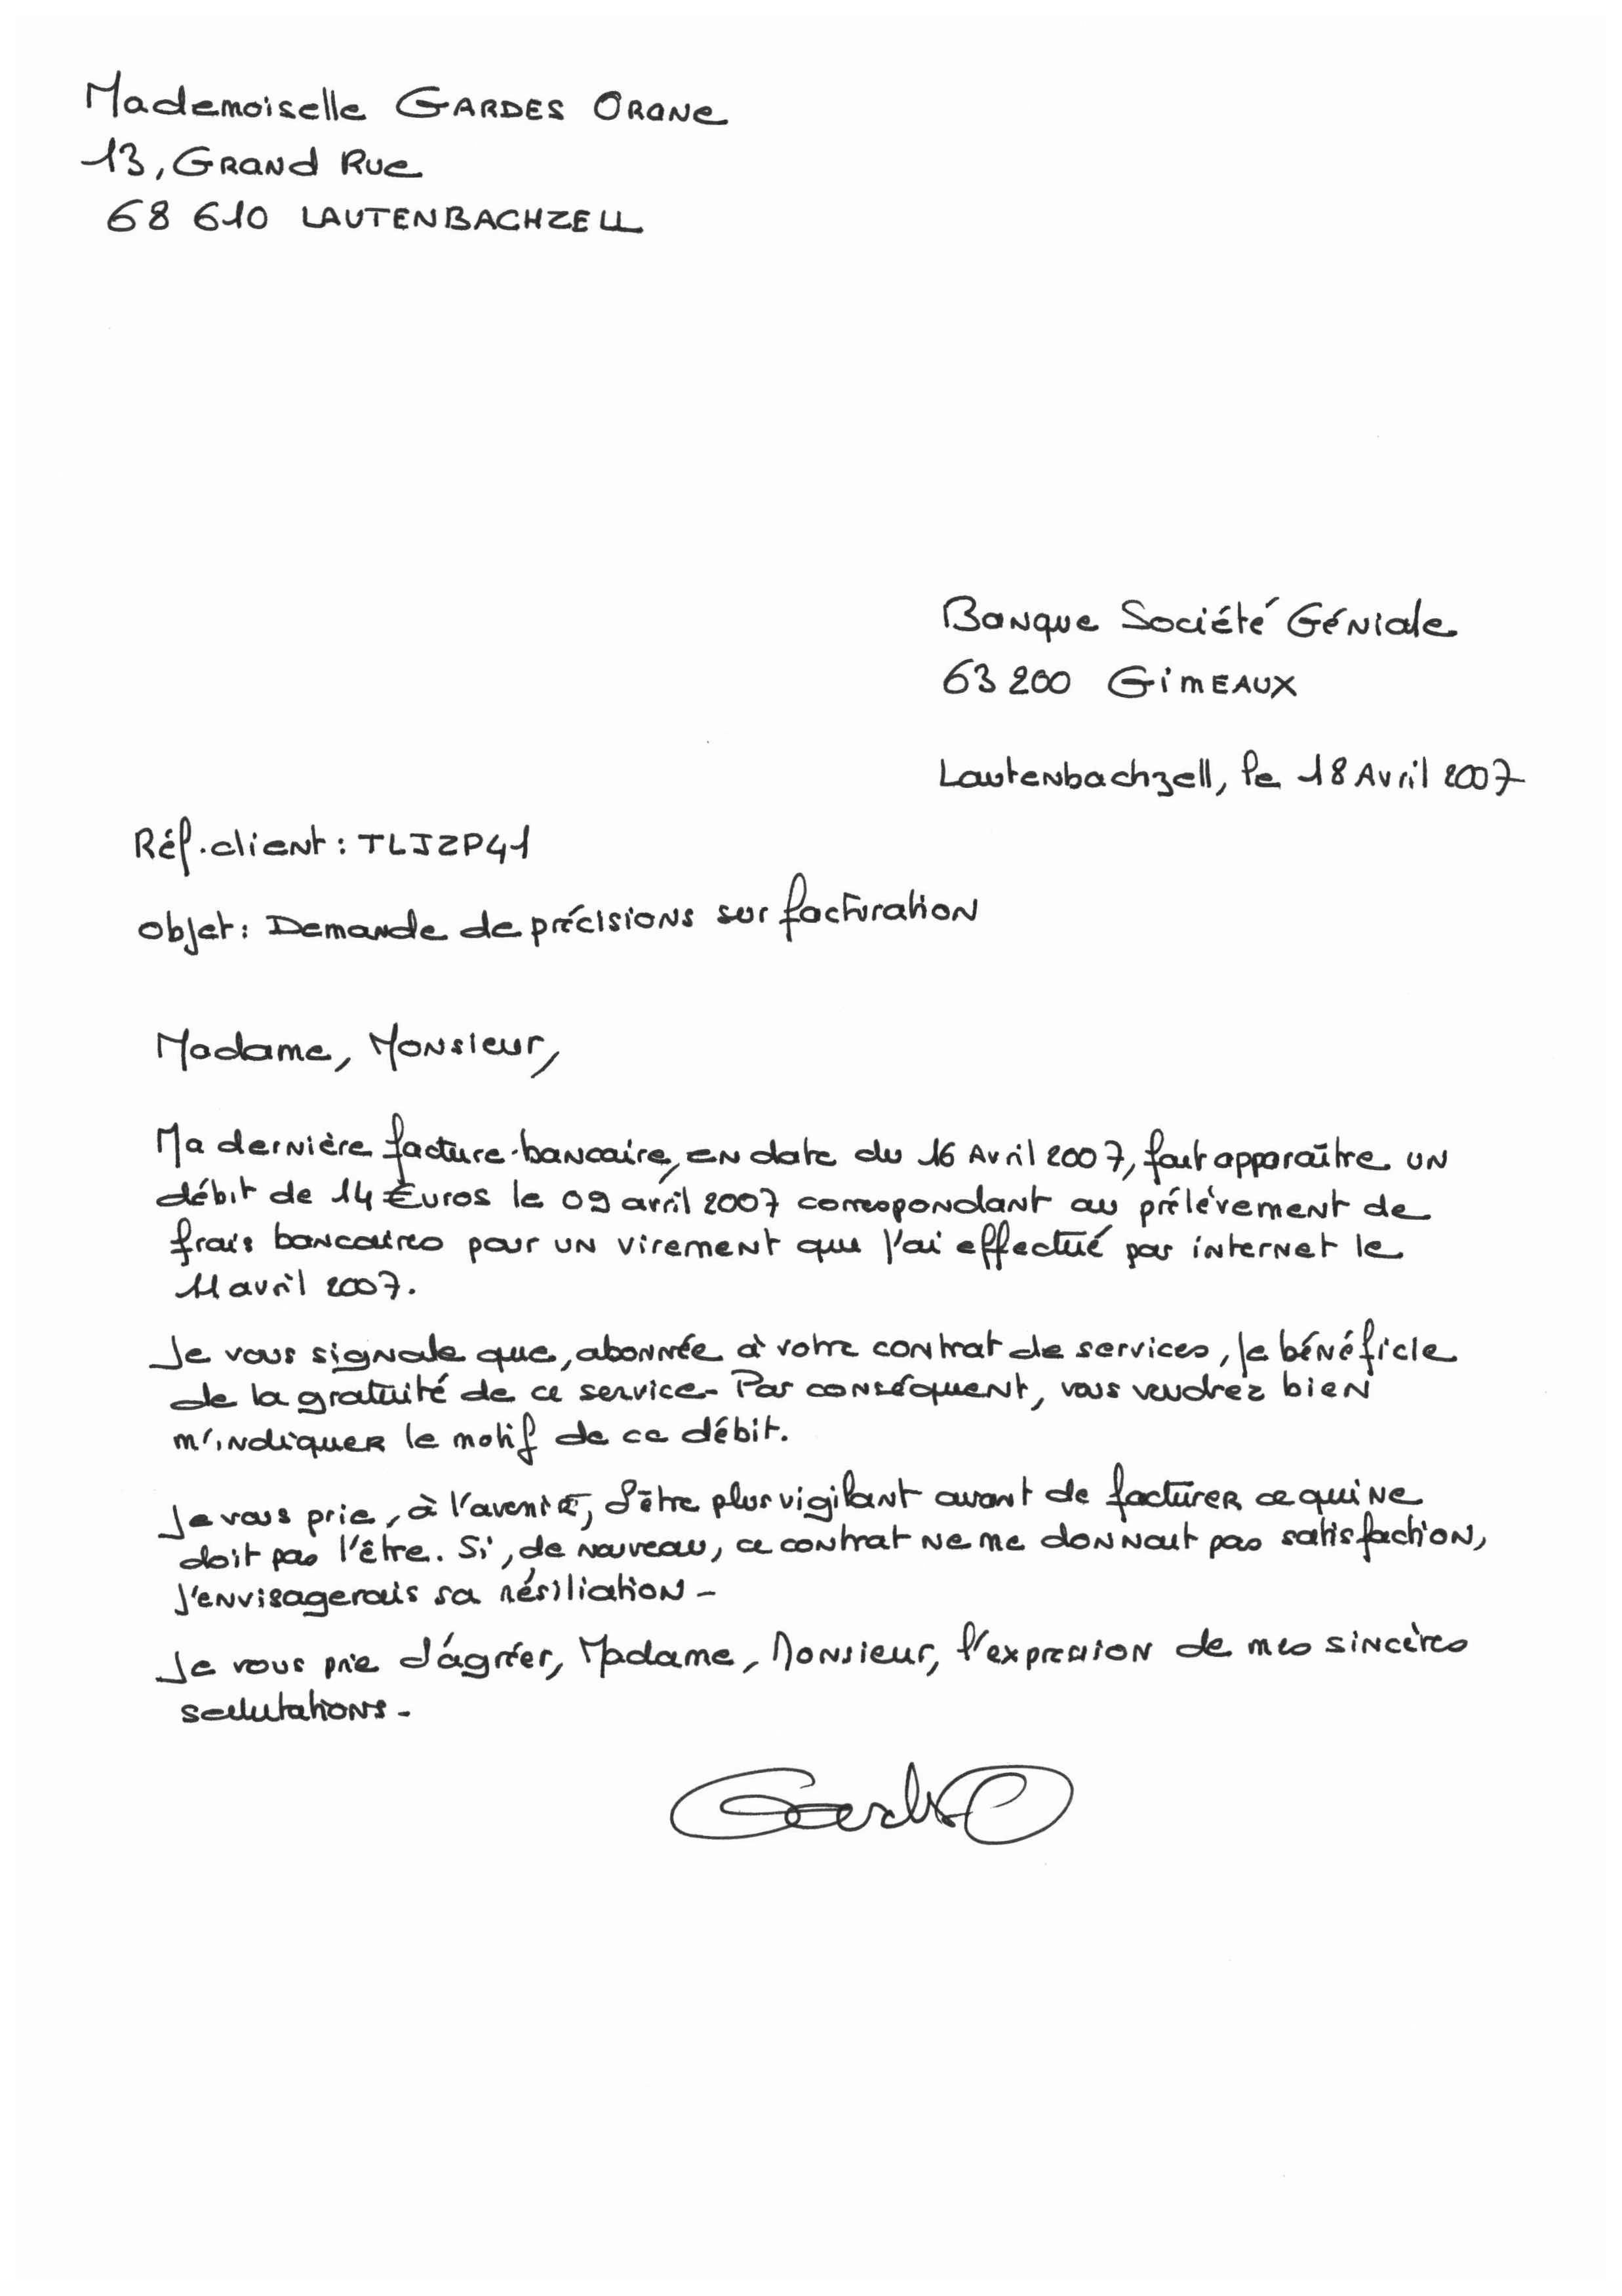 Mademoiselle GARDES ORANE
13, GRAND RUE
68 610 LAUTENBACHZELL
Banque Société Géniale
63 200 GIMEAUX
Lautenbachzell, le 18 Avril 2007
Réf. client : TLJZP41
Objet : Demande de précisions sur facturation
Madame, Monsieur,
Ma dernière facture bancaire, en date du 16 Avril 2007, fait apparaître un
débit de 14 Euros le 09 avril 2007 correspondant au prélèvement de
frais bancaires pour un virement que j'ai effectué par internet le
11 avril 2007.
Je vous signale que, abonnée à votre contrat de services, je bénéficie
de la gratuité de ce service - Par conséquent, vous voudrez bien
m'indiquer le motif de ce débit.
Je vous prie, à l'avenir, d'être plus vigilant avant de facturer ce qui ne
doit pas l'être. Si, de nouveau, ce contrat ne me donnait pas satisfaction,
j'envisagerais sa résiliation -
Je vous prie d'agréer, Madame, Monsieur, l'expression de mes sincères
salutations -